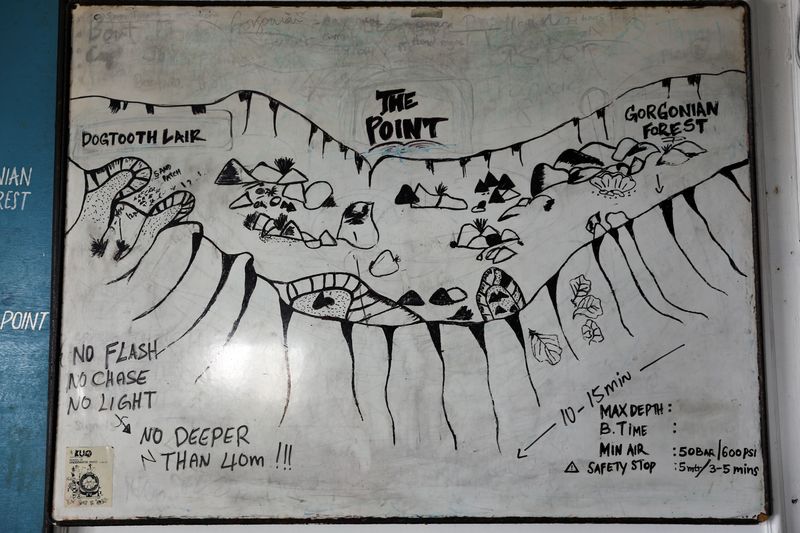 THE
POINT
DOGTOOTH LAIR
GORGONIAN
FOREST
SAND
PATCH
NIAN
REST
POINT
NO FLASH
NO CHASE
NO LIGHT
NO DEEPER
THAN 40m !!!
10-15min
MAX DEPTH :
B. TIME :
MIN AIR : 50BAR/600PSI
SAFETY STOP : 5mtr/3-5 mins